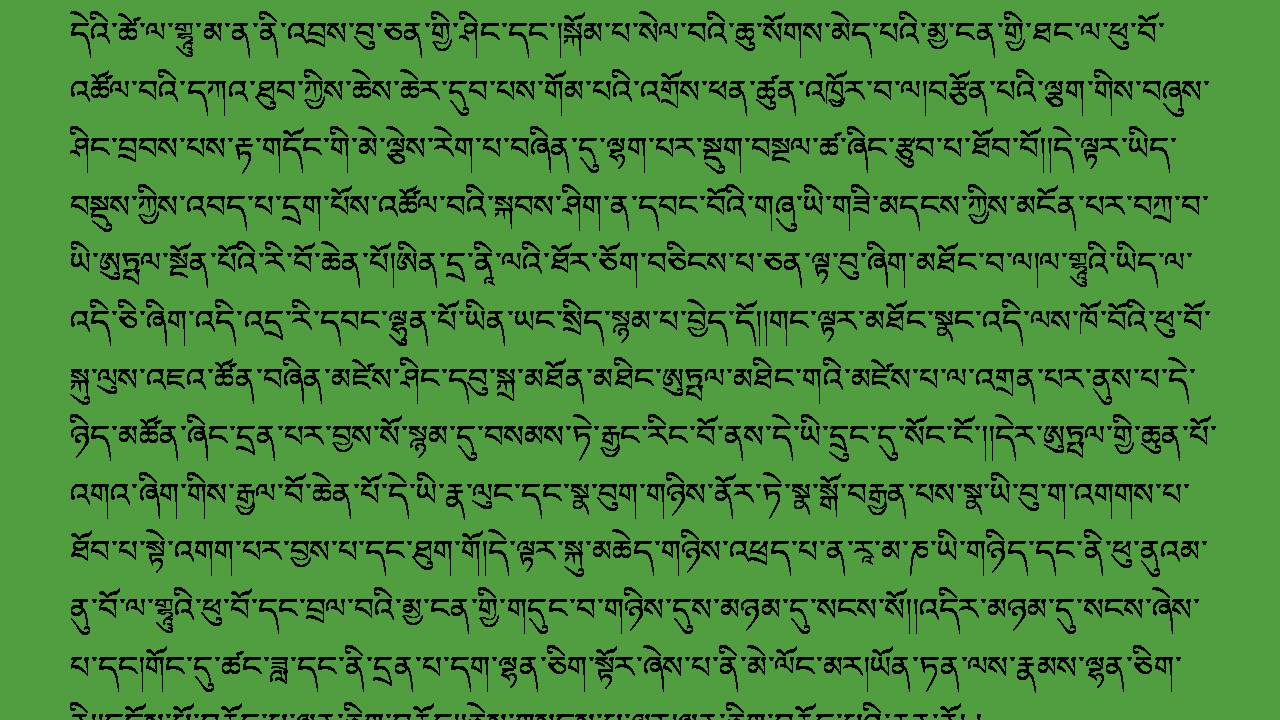 དེའི་ཚེ་ལ་གྷཱུ་མ་ན་ནི་འབྲས་བུ་ཅན་གྱི་ཤིང་དང་།སྐོམ་པ་སེལ་བའི་ཆུ་སོགས་མེད་པའི་མྱ་ངན་གྱི་ཐང་ལ་ཕུ་བོ་
འཚོལ་བའི་དཀའ་ཐུབ་ཀྱིས་ཆེས་ཆེར་དུབ་པས་གོམ་པའི་འགྲོས་ཕན་ཚུན་འཁྱོར་བ་ལ།བརྩོན་པའི་ལྕག་གིས་བཞུས་
ཤིང་བྲབས་པས་རྟ་གདོང་གི་མེ་ལྕེས་རེག་པ་བཞིན་དུ་ལྷག་པར་སྡུག་བསྔལ་ཚ་ཞིང་རྩུབ་པ་ཐོབ་བོ།།དེ་ལྟར་ཡིད་
བསྡུས་ཀྱིས་འབད་པ་དྲག་པོས་འཚོལ་བའི་སྐབས་ཤིག་ན་དབང་བོའི་གཞུ་ཡི་གཟི་མདངས་ཀྱིས་མངོན་པར་བཀྲ་བ་
ཡི་ཨུཏྤལ་སྔོན་པོའི་རི་བོ་ཆེན་པོ།ཨིན་དྲ་ནཱི་ལའི་ཐོར་ཅོག་བཅིངས་པ་ཅན་ལྟ་བུ་ཞིག་མཐོང་བ་ལ།ལ་གྷཱུའི་ཡིད་ལ་
འདི་ཅི་ཞིག་འདི་འདྲ་རི་དབང་ལྷུན་པོ་ཡིན་ཡང་སྲིད་སྙམ་པ་བྱེད་དོ།།གང་ལྟར་མཐོང་སྣང་འདི་ལས་ཁོ་བོའི་ཕུ་བོ་
སྐུ་ལུས་འཇའ་ཚོན་བཞིན་མཛེས་ཤིང་དབུ་སྐྲ་མཐོན་མཐིང་ཨུཏྤལ་མཐིང་གའི་མཛེས་པ་ལ་འགྲན་པར་ནུས་པ་དེ་
ཉིད་མཚོན་ཞིང་དྲན་པར་བྱས་སོ་སྙམ་དུ་བསམས་ཏེ་རྒྱང་རིང་པོ་ནས་དེ་ཡི་དྲུང་དུ་སོང་ངོ་།།དེར་ཨུཏྤལ་གྱི་ཆུན་པོ་
འགའ་ཞིག་གིས་རྒྱལ་བོ་ཆེན་པོ་དེ་ཡི་རྣ་ལུང་དང་སྣ་བུག་གཉིས་ནོར་ཏེ་སྣ་སྒོ་བརྒྱན་པས་སྣ་ཡི་བུ་ག་འགགས་པ་
ཐོབ་པ་སྟེ་འགག་པར་བྱས་པ་དང་ཐུག་གོ།དེ་ལྟར་སྐུ་མཆེད་གཉིས་འཕྲད་པ་ན་རཱ་མ་ཎ་ཡི་གཉིད་དང་ནི་ཕུ་ནུའམ་
ནུ་བོ་ལ་གྷཱུའི་ཕུ་བོ་དང་བྲལ་བའི་མྱ་ངན་གྱི་གདུང་བ་གཉིས་དུས་མཉམ་དུ་སངས་སོ།།འདིར་མཉམ་དུ་སངས་ཞེས་
པ་དང་།གོང་དུ་ཚང་ཟླ་དང་ནི་དྲན་པ་དག་ལྷན་ཅིག་སྟོར་ཞེས་པ་ནི་མེ་ལོང་མར།ཡོན་ཏན་ལས་རྣམས་ལྷན་ཅིག་